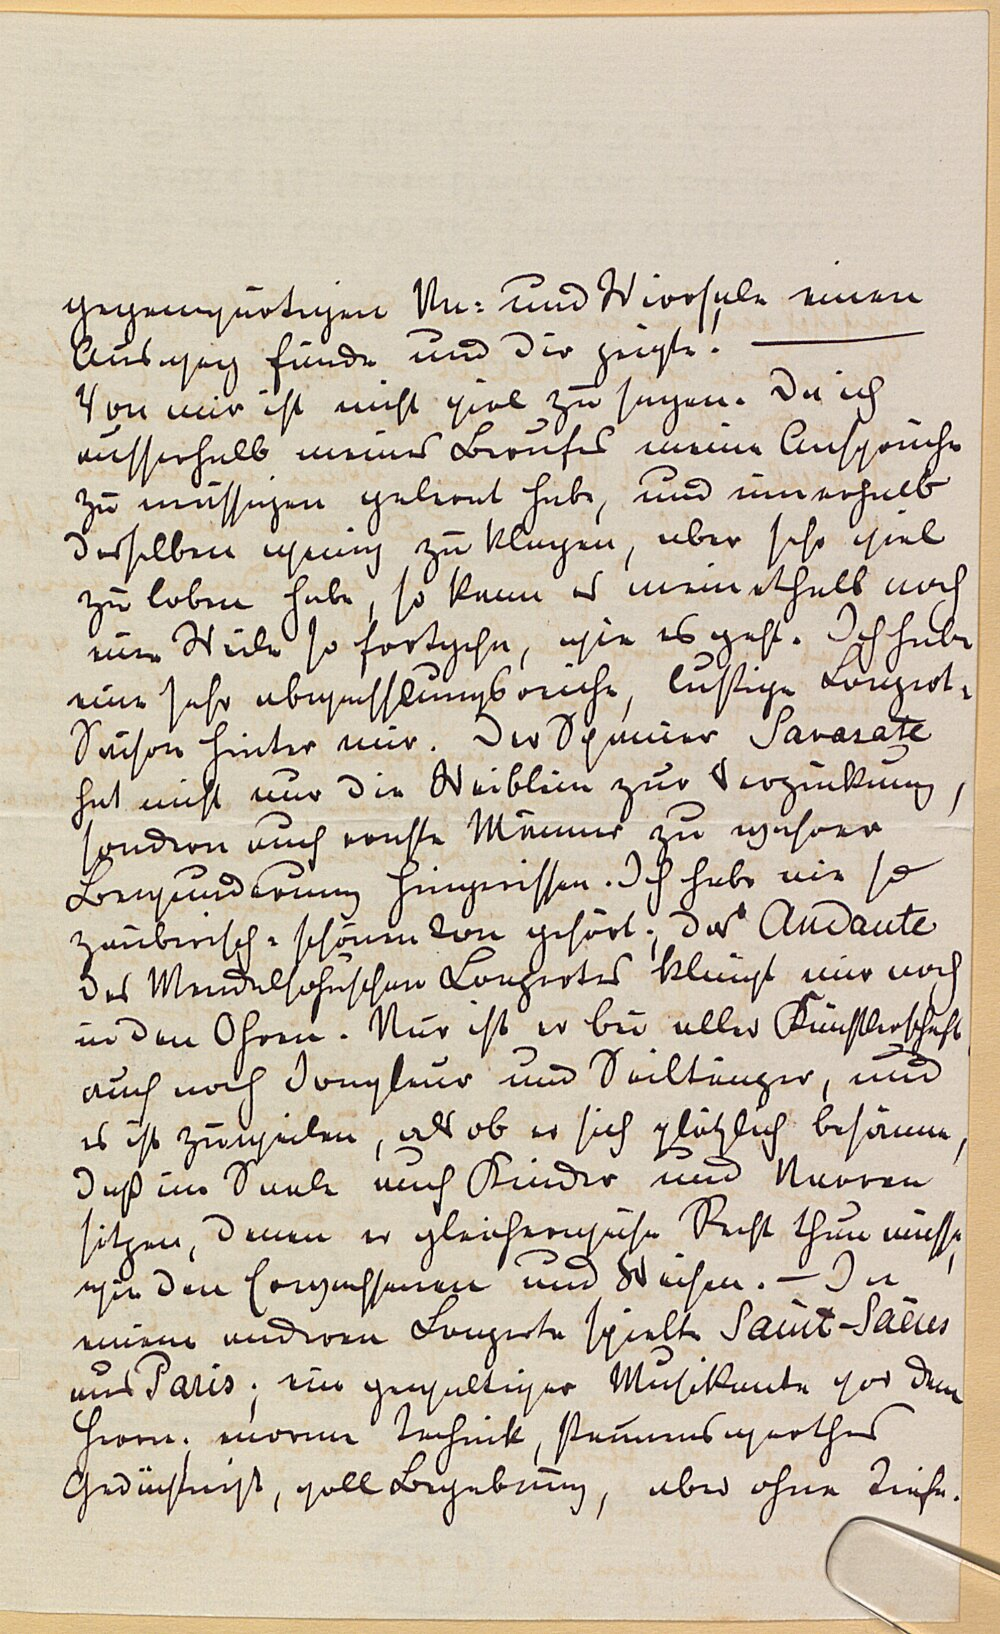 gegenwärtigen An- und Wirrsale einen
Ausweg fände und dir zeigte! —
Von mir ist nicht viel zu sagen. Da ich
ausserhalb meines Berufes meine Ansprüche
zu mässigen gelernt habe, und innerhalb
desselben wenig zu klagen, aber sehr viel
zu loben habe, so kann es meinethalb noch
eine Weile so fortgehn, wie es geht. Ich habe
eine sehr abwechslungsreiche, lustige Conzert-
Saison hinter mir. Der Spanier Sarasate
hat nicht nur die Weiblein zur Verzückung,
sondern auch ernste Männer zu wahrer
Bewunderung hingerissen. Ich habe nie so
zauberisch-schönen Ton gehört; das Andante
des Mendelsohn'schen Conzertes klingt mir noch
in den Ohren. Nur ist er bei aller Künstlerschaft
auch noch Jongleur und Seiltänzer, und
es ist zuweilen, als ob er sich plötzlich besänne,
daß im Saale auch Kinder und Narren
sitzen, denen er gleicherweise Recht thun müsse,
wie den Erwachsenen und Weisen. — In
einem anderen Conzerte spielte Saint-Saëns
aus Paris; ein gewaltiger Musikante vor dem
Herrn. enorme Technik, staunenswerthes
Gedächtniß, voll Begabung, aber ohne Tiefe.